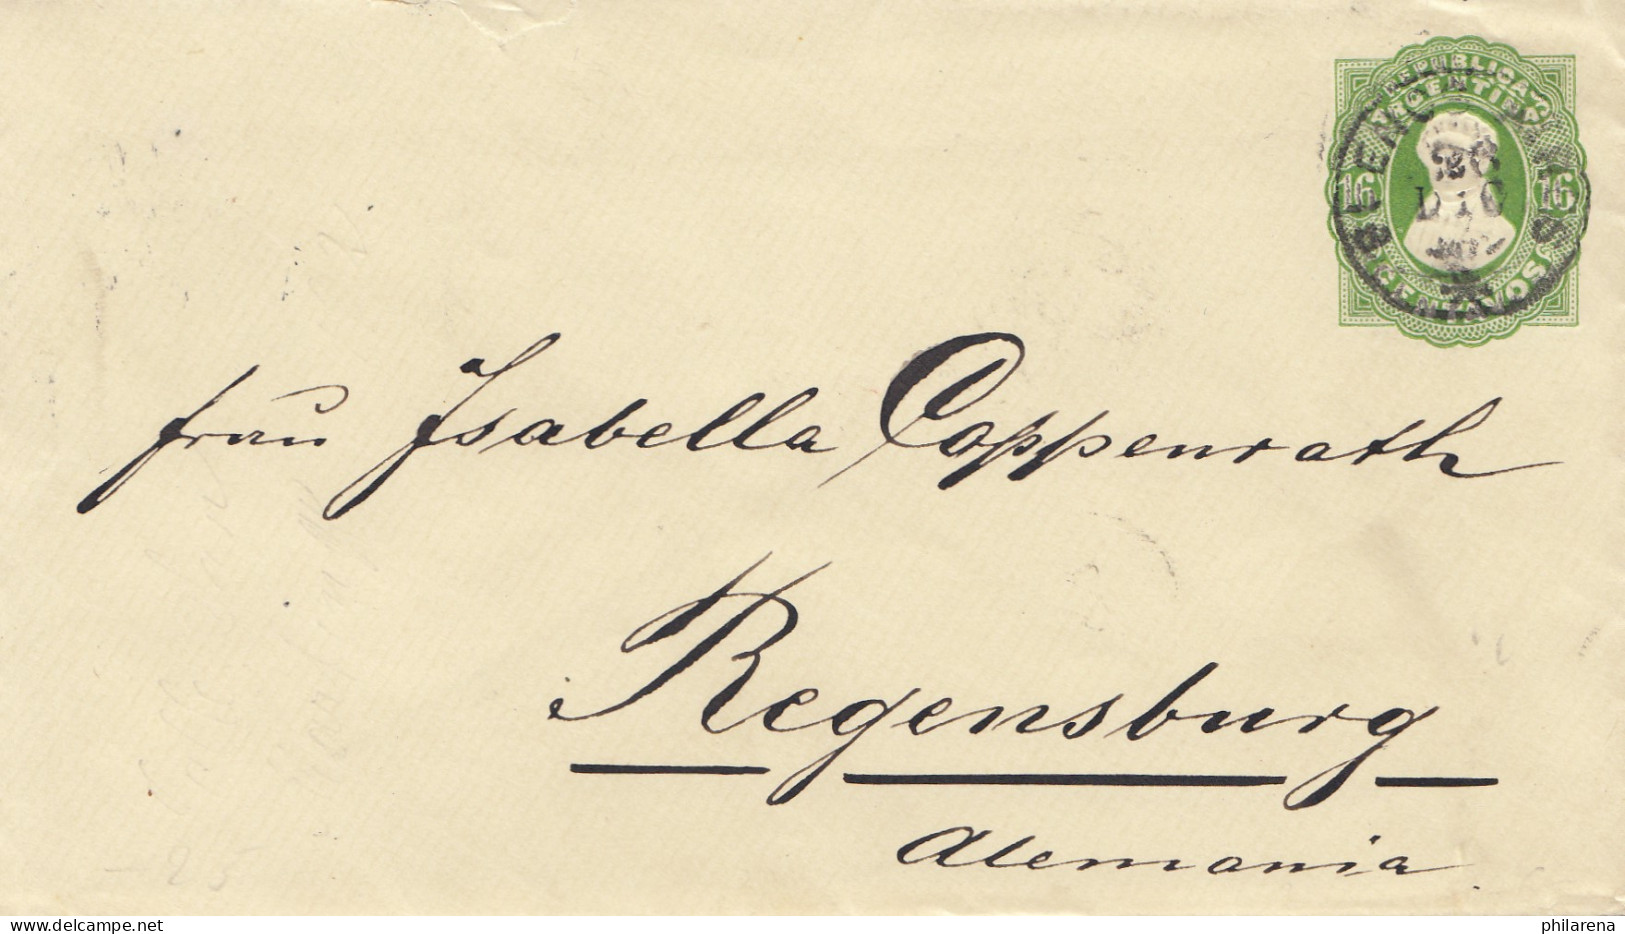 REPUBLICA
ARGENTINA
16 16
CENTAVOS
26
DIC
frau Isabella Coppenrath
Regensburg
Alemania
- 25
philarena